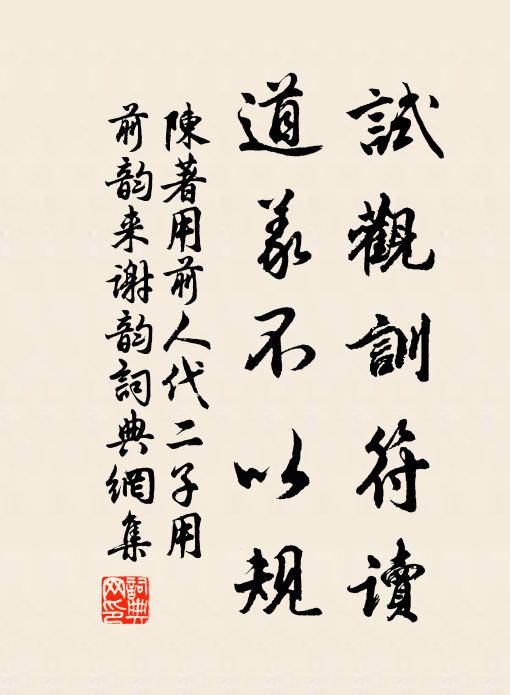 試觀訓符讀
道義不以規
陳著用前人代二子用
前韵来谢韵詞典網集
詞典网印